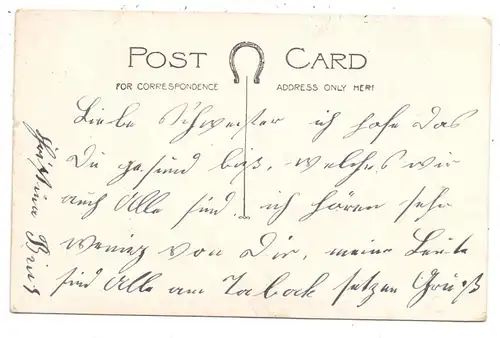 POST CARD
FOR CORRESPONDENCE ADDRESS ONLY HERE
Liebe Schwester ich hofe das
Du gesund bist, welches wir
auch Alle sind, ich hören sehr
wenig von Dir, meine Leute
sind Alle am Taback setzen Gruß